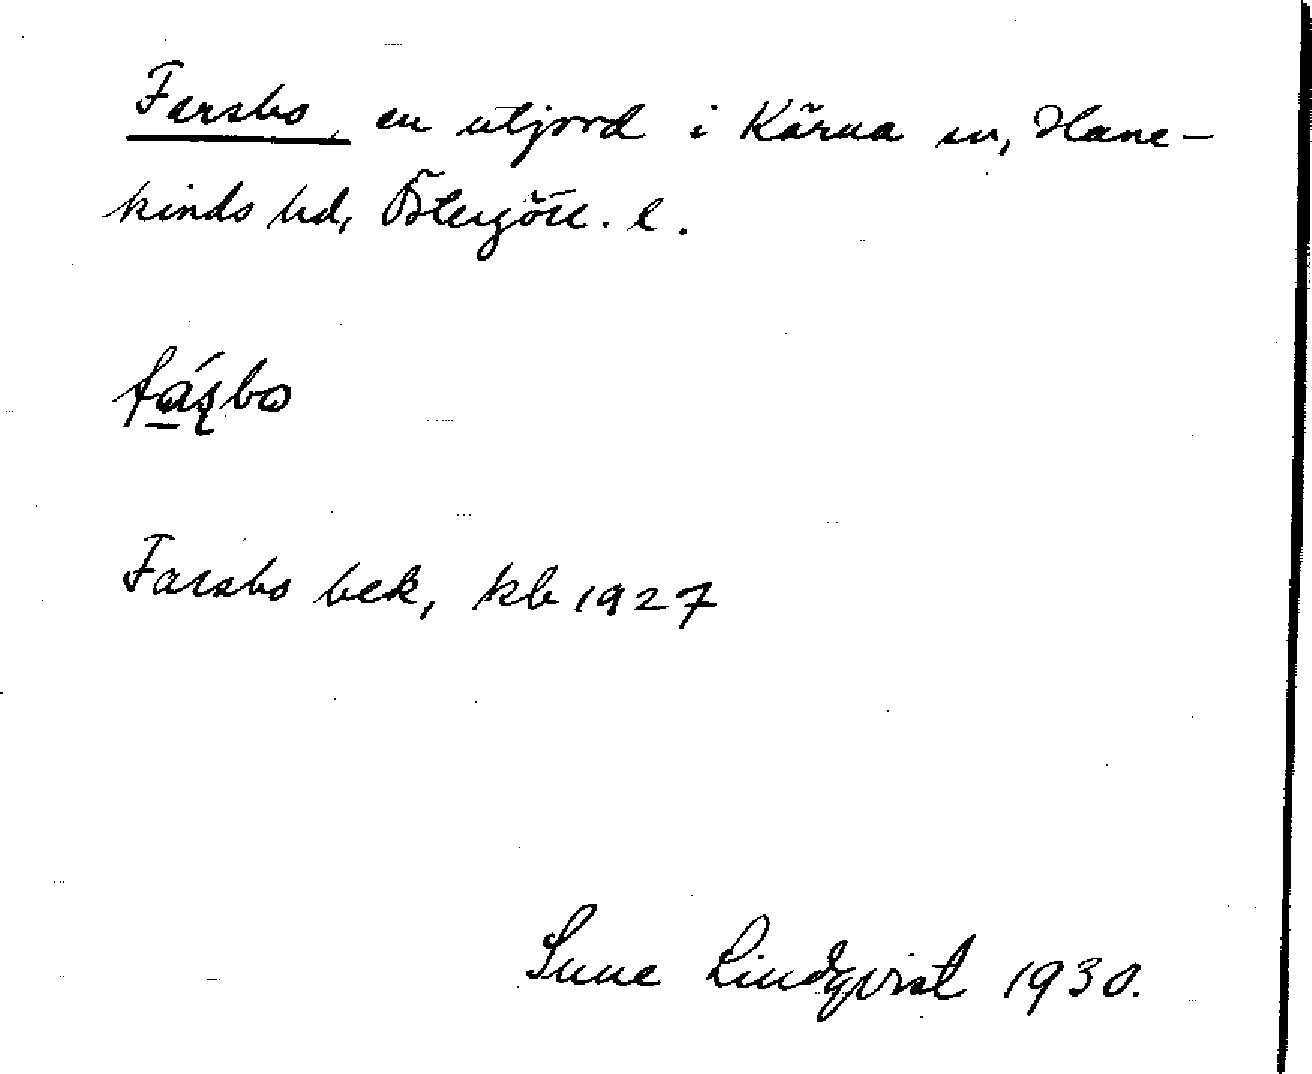 Farsbo, en utjord i Kärna sn, Hane-
kinds hd, Östergötl. l.
fáʂbo
Farsbo bek, kb 1927
Sune Lindqvist 1930.